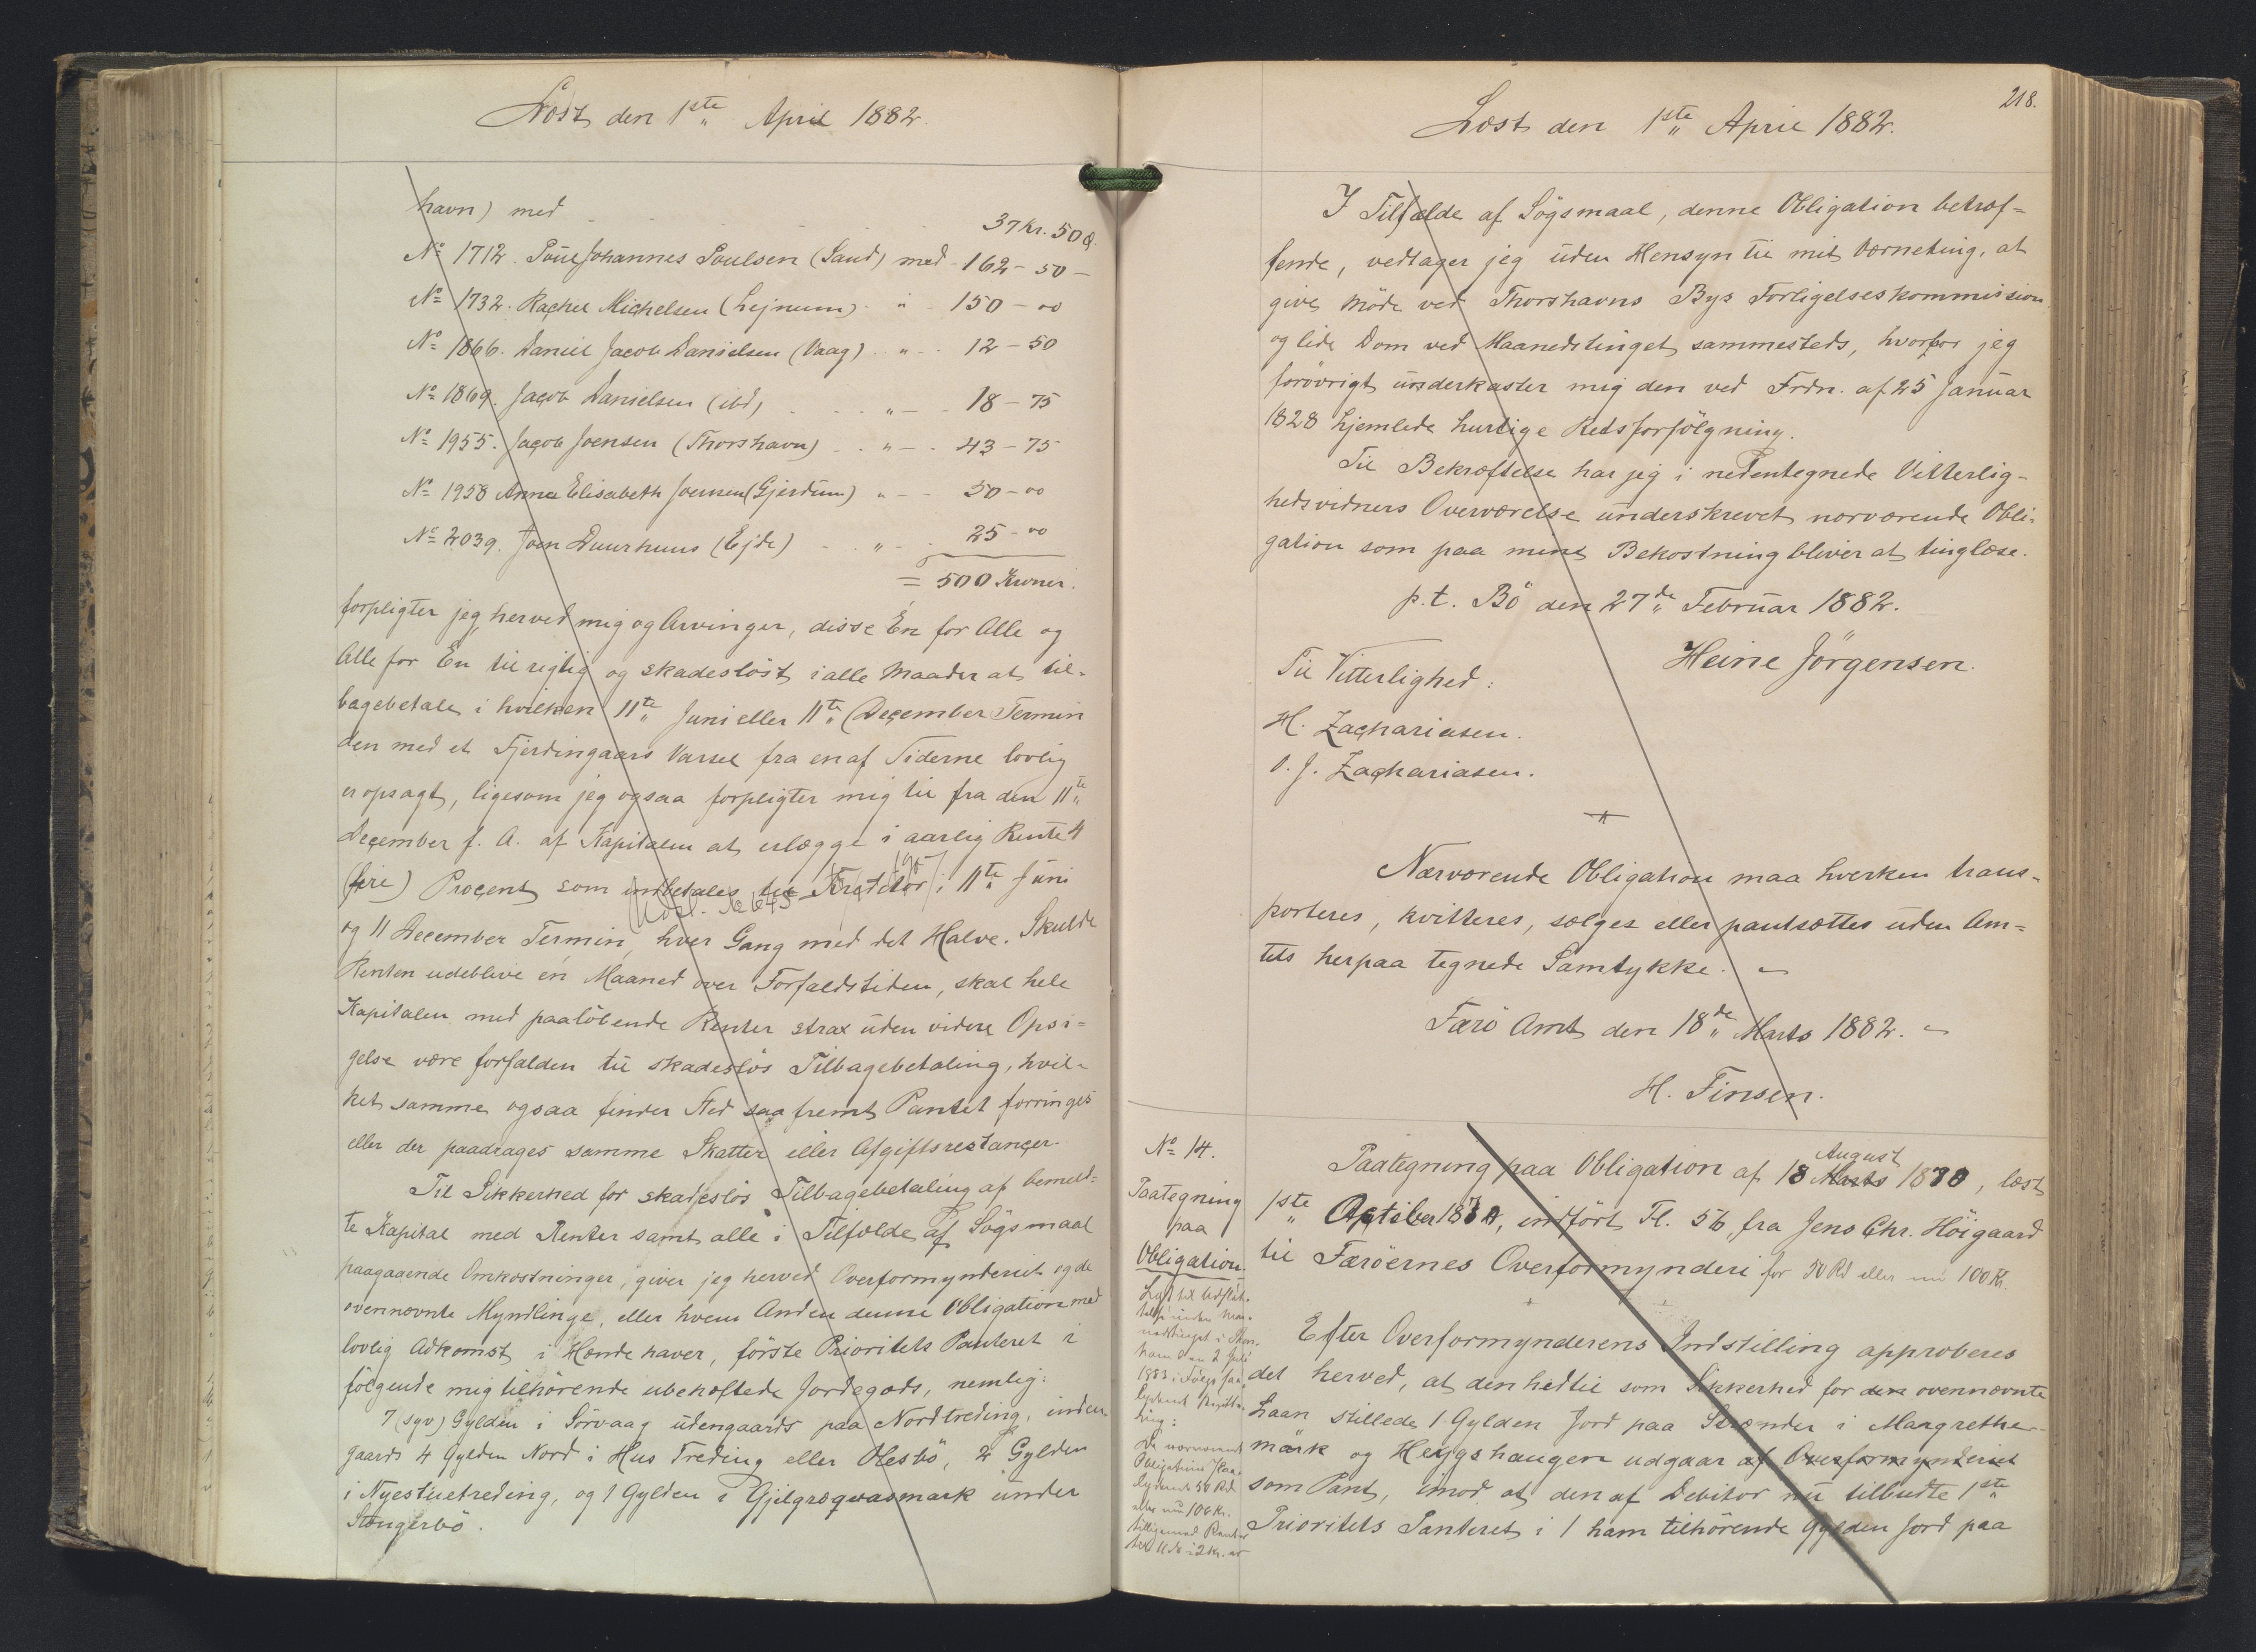 Læst den 1ste April 1882.
havn) med 37 Kr. 50 Ø.
No 1712. Poul Johannes Poulsen (Sand) med - 162 - 50 -
No 1732. Rachel Michelsen (Lejnum) " 150 - 00
No 1866. Daniel Jacob Danielsen (Vaag) " 12 - 50
No 1869. Jacob Danielsen (ibd) " 18 - 75
No 1955. Jacob Joensen (Thorshavn) " 43 - 75
No 1958 Anna Elisabeth Joensen (Gjerdum) " 50 - 00
No 2039. Joen Duurhuus (Ejde) " 25 - 00
= 500 Kroner.
forpligter jeg herved mig og Arvinger, disse Én for Alle og
Alle for Én til rigtig og skadesløst i alle Maader at til-
bagebetale i hvilken 11te Juni eller 11te December Termin
den med et Fjerdingaars Varsel fra en af Siderne lovlig
er opsagt, ligesom jeg ogsaa forpligter mig til fra den 11te
December f. A. af Kapitalen at erlægge i aarlig Rente 4
(fire) Procent som indbetales til Kreditor i 11te Juni
og 11 December Termin, hver Gang med det Halve. Skulde
Renten udeblive én Maaned over Forfaldstiden, skal hele
Kapitalen med paaløbende Renter strax uden videre Opsi-
gelse være forfalden til skadesløs Tilbagebetaling, hvil-
ket samme ogsaa finder Sted saafremt Pantet forringes
eller der paadrages samme Skatter eller Afgiftsrestancer.
Til Sikkerhed for skadesløs Tilbagebetaling af bemeld-
te Kapital med Renter samt alle i Tilfælde af Søgsmaal
paagaaende Omkostninger, giver jeg herved Overformynderiet og de
ovennævnte Myndlinge, eller hvem Anden denne Obligation med
lovlig Adkomst i Hænde haver, første Prioritets Panteret i
følgende mig tilhørende ubehæftede Jordegods, nemlig:
7 (syv) Gylden i Sørvaag udengaards paa Nordtreding, inden-
gaards 4 Gylden Nord i Hus Treding eller Olesbø, 2 Gylden
i Nyestuetreding, og 1 Gylden i Gjilgræqvasmark under
Stongerbø.
218.
Læst den 1ste April 1882.
I Tilfælde af Søgsmaal, denne Obligation betræf-
fende, vedtager jeg uden Hensyn til mit Værneting, at
give Møde ved Thorshavns Bys Forligelseskommission
og lide Dom ved Maanedstinget sammesteds, hvorfor jeg
forøvrigt underkaster mig den ved Frdn. af 25 Januar
1828 hjemlede hurtige Retsforfølgning.
Til Bekræftelse har jeg i nedentegnede Vitterlig-
hedsvidners Overværelse underskrevet nærværende Obli-
gation som paa mine Bekostning bliver at tinglæse.
p.t. Bö den 27de Februar 1882.
Heine Jörgensen.
Til Vitterlighed:
H. Zachariasen.
O. J. Zachariasen.
Nærværende Obligation maa hverken trans-
porteres, kvitteres, sælges eller pantsættes uden Am-
tets herpaa tegnede Samtykke.
Færö Amt den 18de Marts 1882.
H. Finsen.
No 14.
Paategning
paa
Obligation.
Paategning paa Obligation af 18 Marts August 1870, læst
1ste October 1870, indført Fl. 56, fra Jens Chr. Höigaard
til Færöernes Overformynderi for 50 Rd eller nu 100 Kr.
Efter Overformynderens Indstilling approberes
det herved, at den hidtil som Sikkerhed for den ovennævnte
Laan stillede 1 Gylden Jord paa Strænder i Margrethe-
mark og Heygshaugen udgaar af Overformynderiet
som Pant, imod at den af Debitor nu tilbudte 1ste
Prioritets Panteret i 1 ham tilhörende Gylden Jord paa
nærværende
Obligation
lydende 50 Rd.
eller nu 100 Kr.
tilligemed Renter